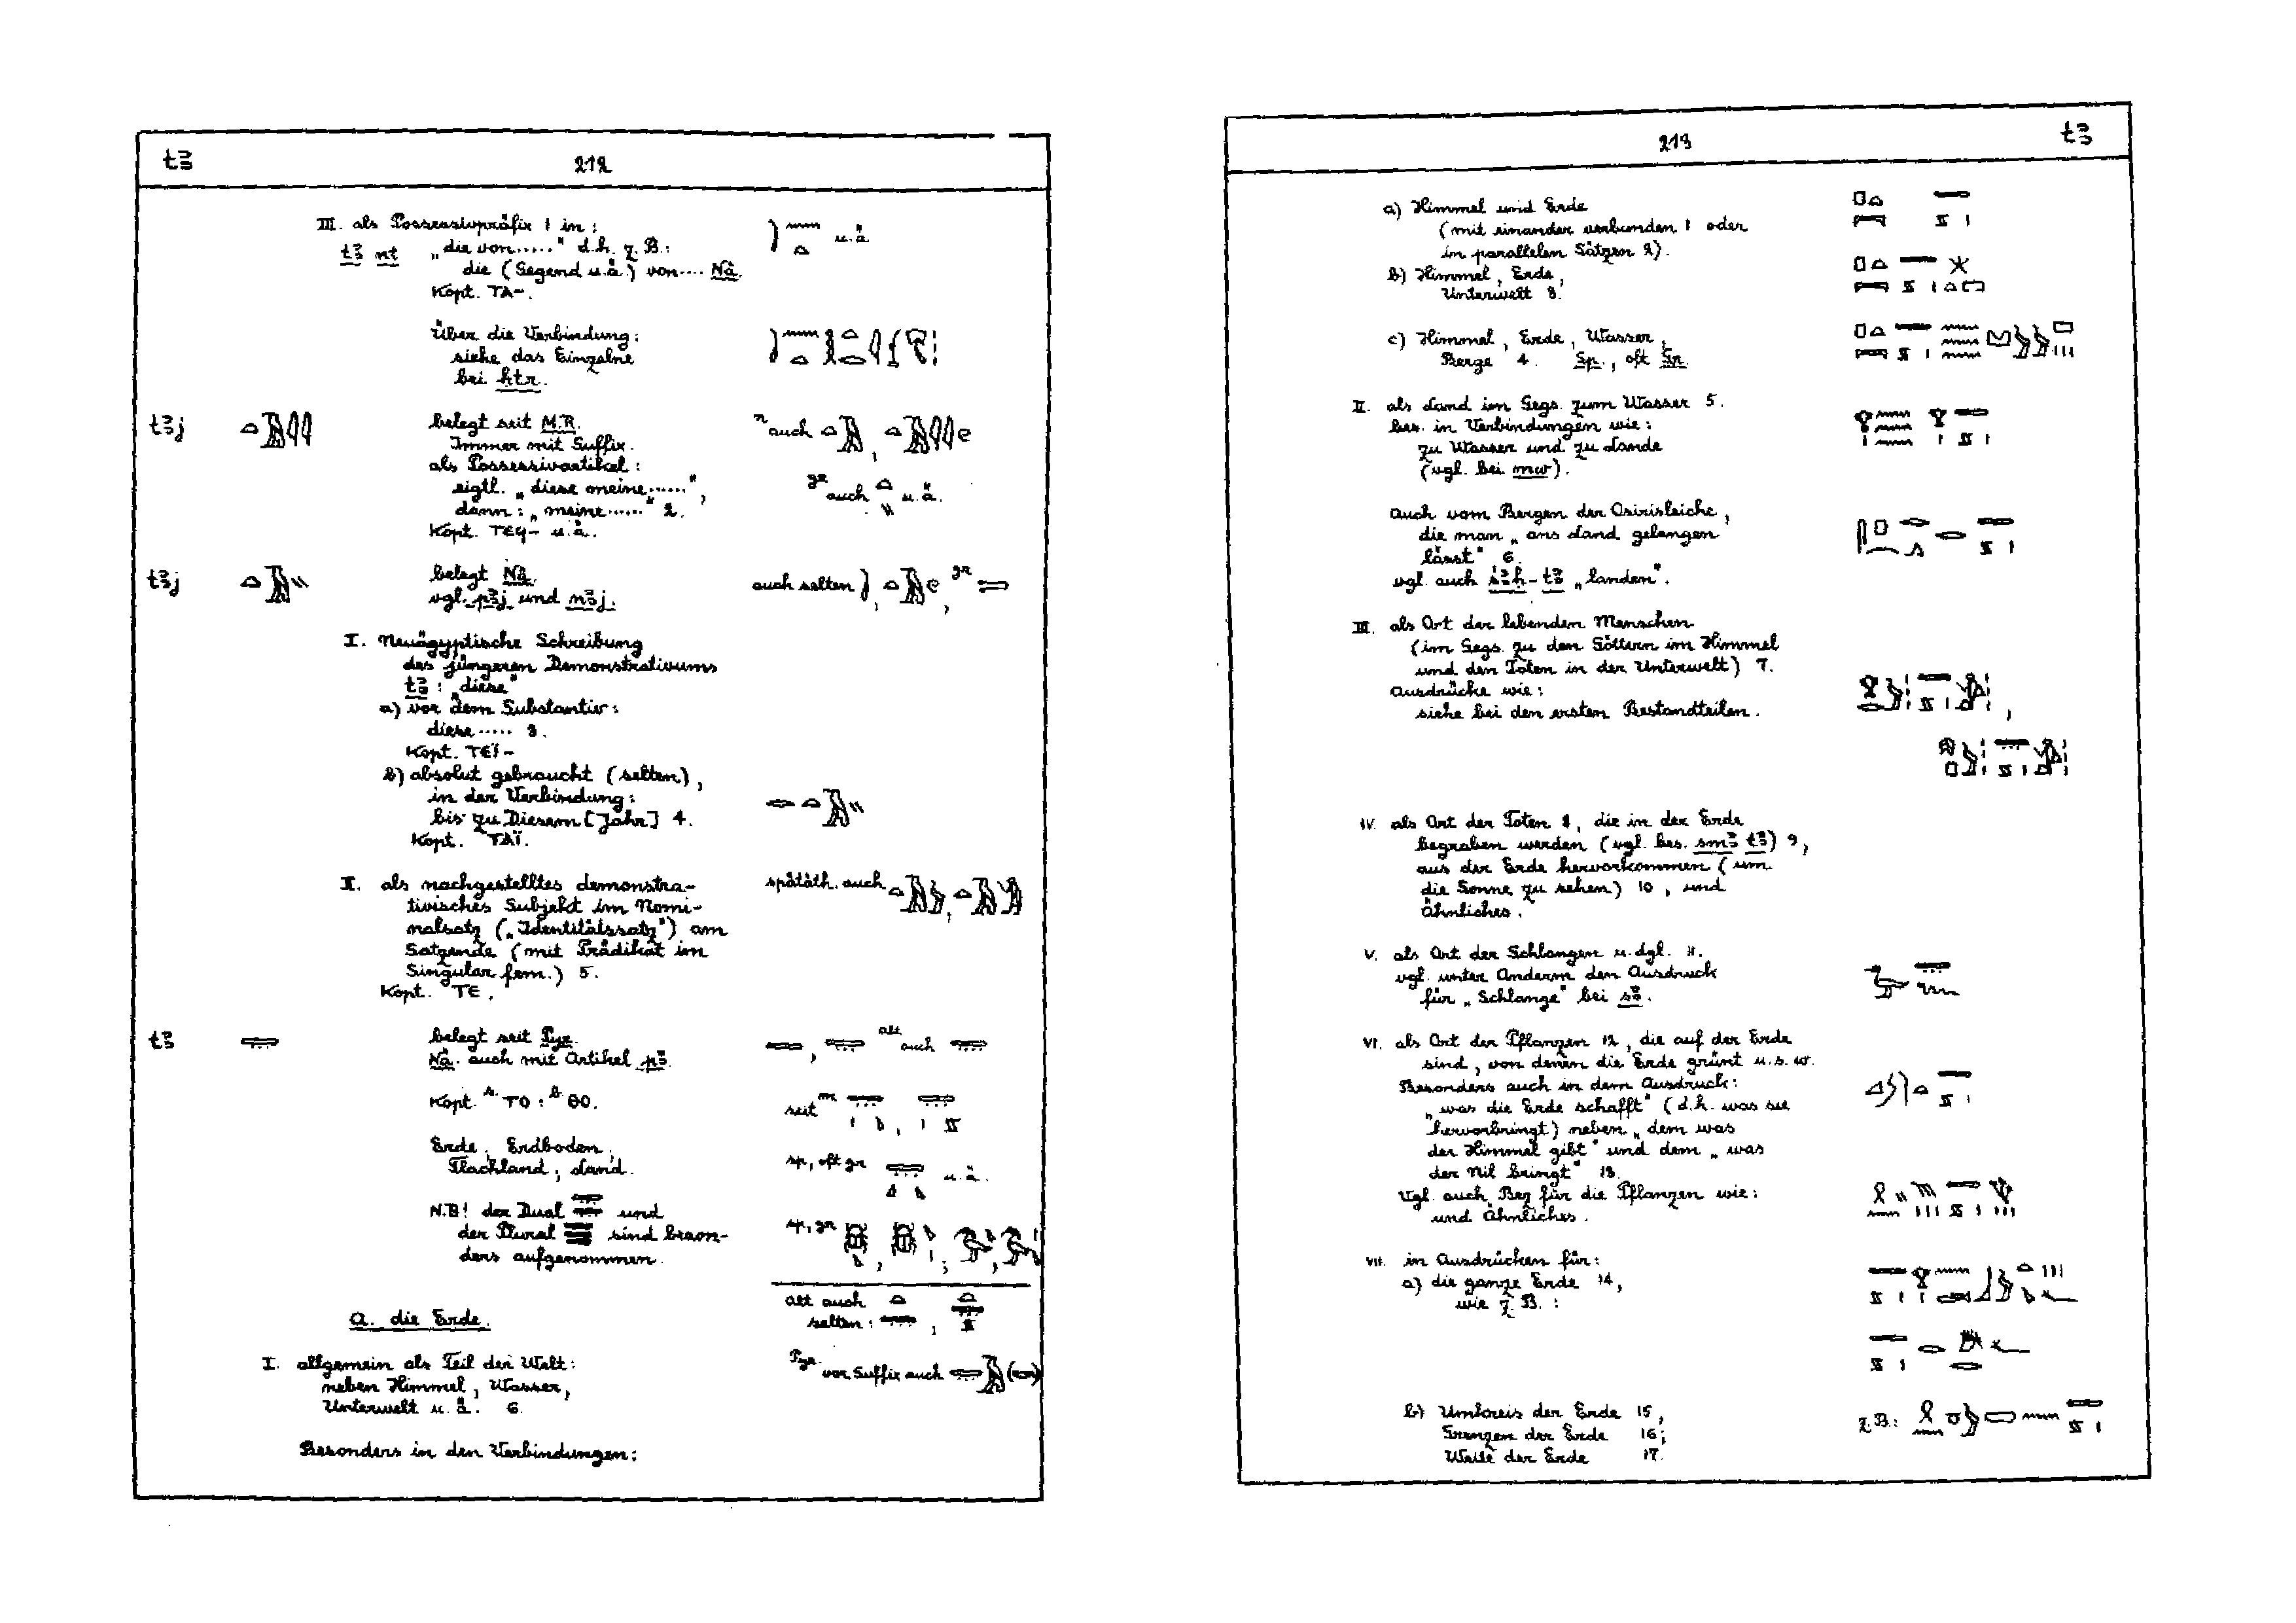 tꜣ
212
III. als Possessivpräfix 1 in:
tꜣ nt „die von....." d.h. z.B.:
u.ä.
die (Gegend u.ä.) von.... Nä.
Kopt. TA-.
Über die Verbindung:
siehe das Einzelne
bei ḥtr.
tꜣj
belegt seit M.R.
Immer mit Suffix.
n auch
als Possessivartikel:
eigtl. „diese meine......",
gr auch u.ä.
dann: „meine....." 2.
Kopt. TEϤ- u.ä.
tꜣj
belegt Nä.
auch selten , , gr
vgl. pꜣj und nꜣj.
I. Neuägyptische Schreibung
des jüngeren Demonstrativums
tꜣ: „diese"
a) vor dem Substantiv:
diese..... 3.
Kopt. TEÏ-
b) absolut gebraucht (selten),
in der Verbindung:
bis zu Diesem [Jahr] 4.
Kopt. TAÏ.
II. als nachgestelltes demonstra-
spätäth. auch
tivisches Subjekt im Nomi-
nalsatz („Identitätssatz") am
Satzende (mit Prädikat im
Singular fem.) 5.
Kopt. TE.
tꜣ
belegt seit Pyr.
alt auch
Nä. auch mit Artikel pꜣ.
Kopt. s. TO : b. ΘO.
seit m
Erde, Erdboden,
Flachland, Land.
sp, oft gr u.ä.
N.B! der Dual und
der Plural sind beson-
sp, gr
ders aufgenommen.
A. die Erde.
alt auch
selten:
I. allgemein als Teil der Welt:
neben Himmel, Wasser,
Pyr. vor Suffix auch
Unterwelt u.ä. 6.
Besonders in den Verbindungen:
213
tꜣ
a) Himmel und Erde
(mit einander verbunden 1 oder
in parallelen Sätzen 2).
b) Himmel, Erde,
Unterwelt 3.
c) Himmel, Erde, Wasser,
Berge 4. Sp., oft Gr.
II. als Land im Gegs. zum Wasser 5.
bes. in Verbindungen wie:
zu Wasser und zu Lande
(vgl. bei mw).
Auch vom Bergen der Osirisleiche,
die man „ans Land gelangen
lässt" 6.
vgl. auch sꜣḥ-tꜣ „landen".
III. als Ort der lebenden Menschen
(im Gegs. zu den Göttern im Himmel
und den Toten in der Unterwelt) 7.
Ausdrücke wie:
siehe bei den ersten Bestandteilen.
IV. als Ort der Toten 8, die in der Erde
begraben werden (vgl. bes. smꜣ tꜣ) 9,
aus der Erde hervorkommen (um
die Sonne zu sehen) 10, und
Ähnliches.
V. als Ort der Schlangen u.dgl. 11.
vgl. unter Anderm den Ausdruck
für „Schlange" bei sꜣ.
VI. als Ort der Pflanzen 12, die auf der Erde
sind, von denen die Erde grünt u.s.w.
Besonders auch in dem Ausdruck:
„was die Erde schafft" (d.h. was sie
hervorbringt) neben „dem was
der Himmel gibt" und dem „was
der Nil bringt" 13.
Vgl. auch Bez. für die Pflanzen wie:
und Ähnliches.
VII. in Ausdrücken für:
a) die ganze Erde 14,
wie z.B.:
b) Umkreis der Erde 15,
z.B.:
Grenzen der Erde 16;
Weite der Erde 17.